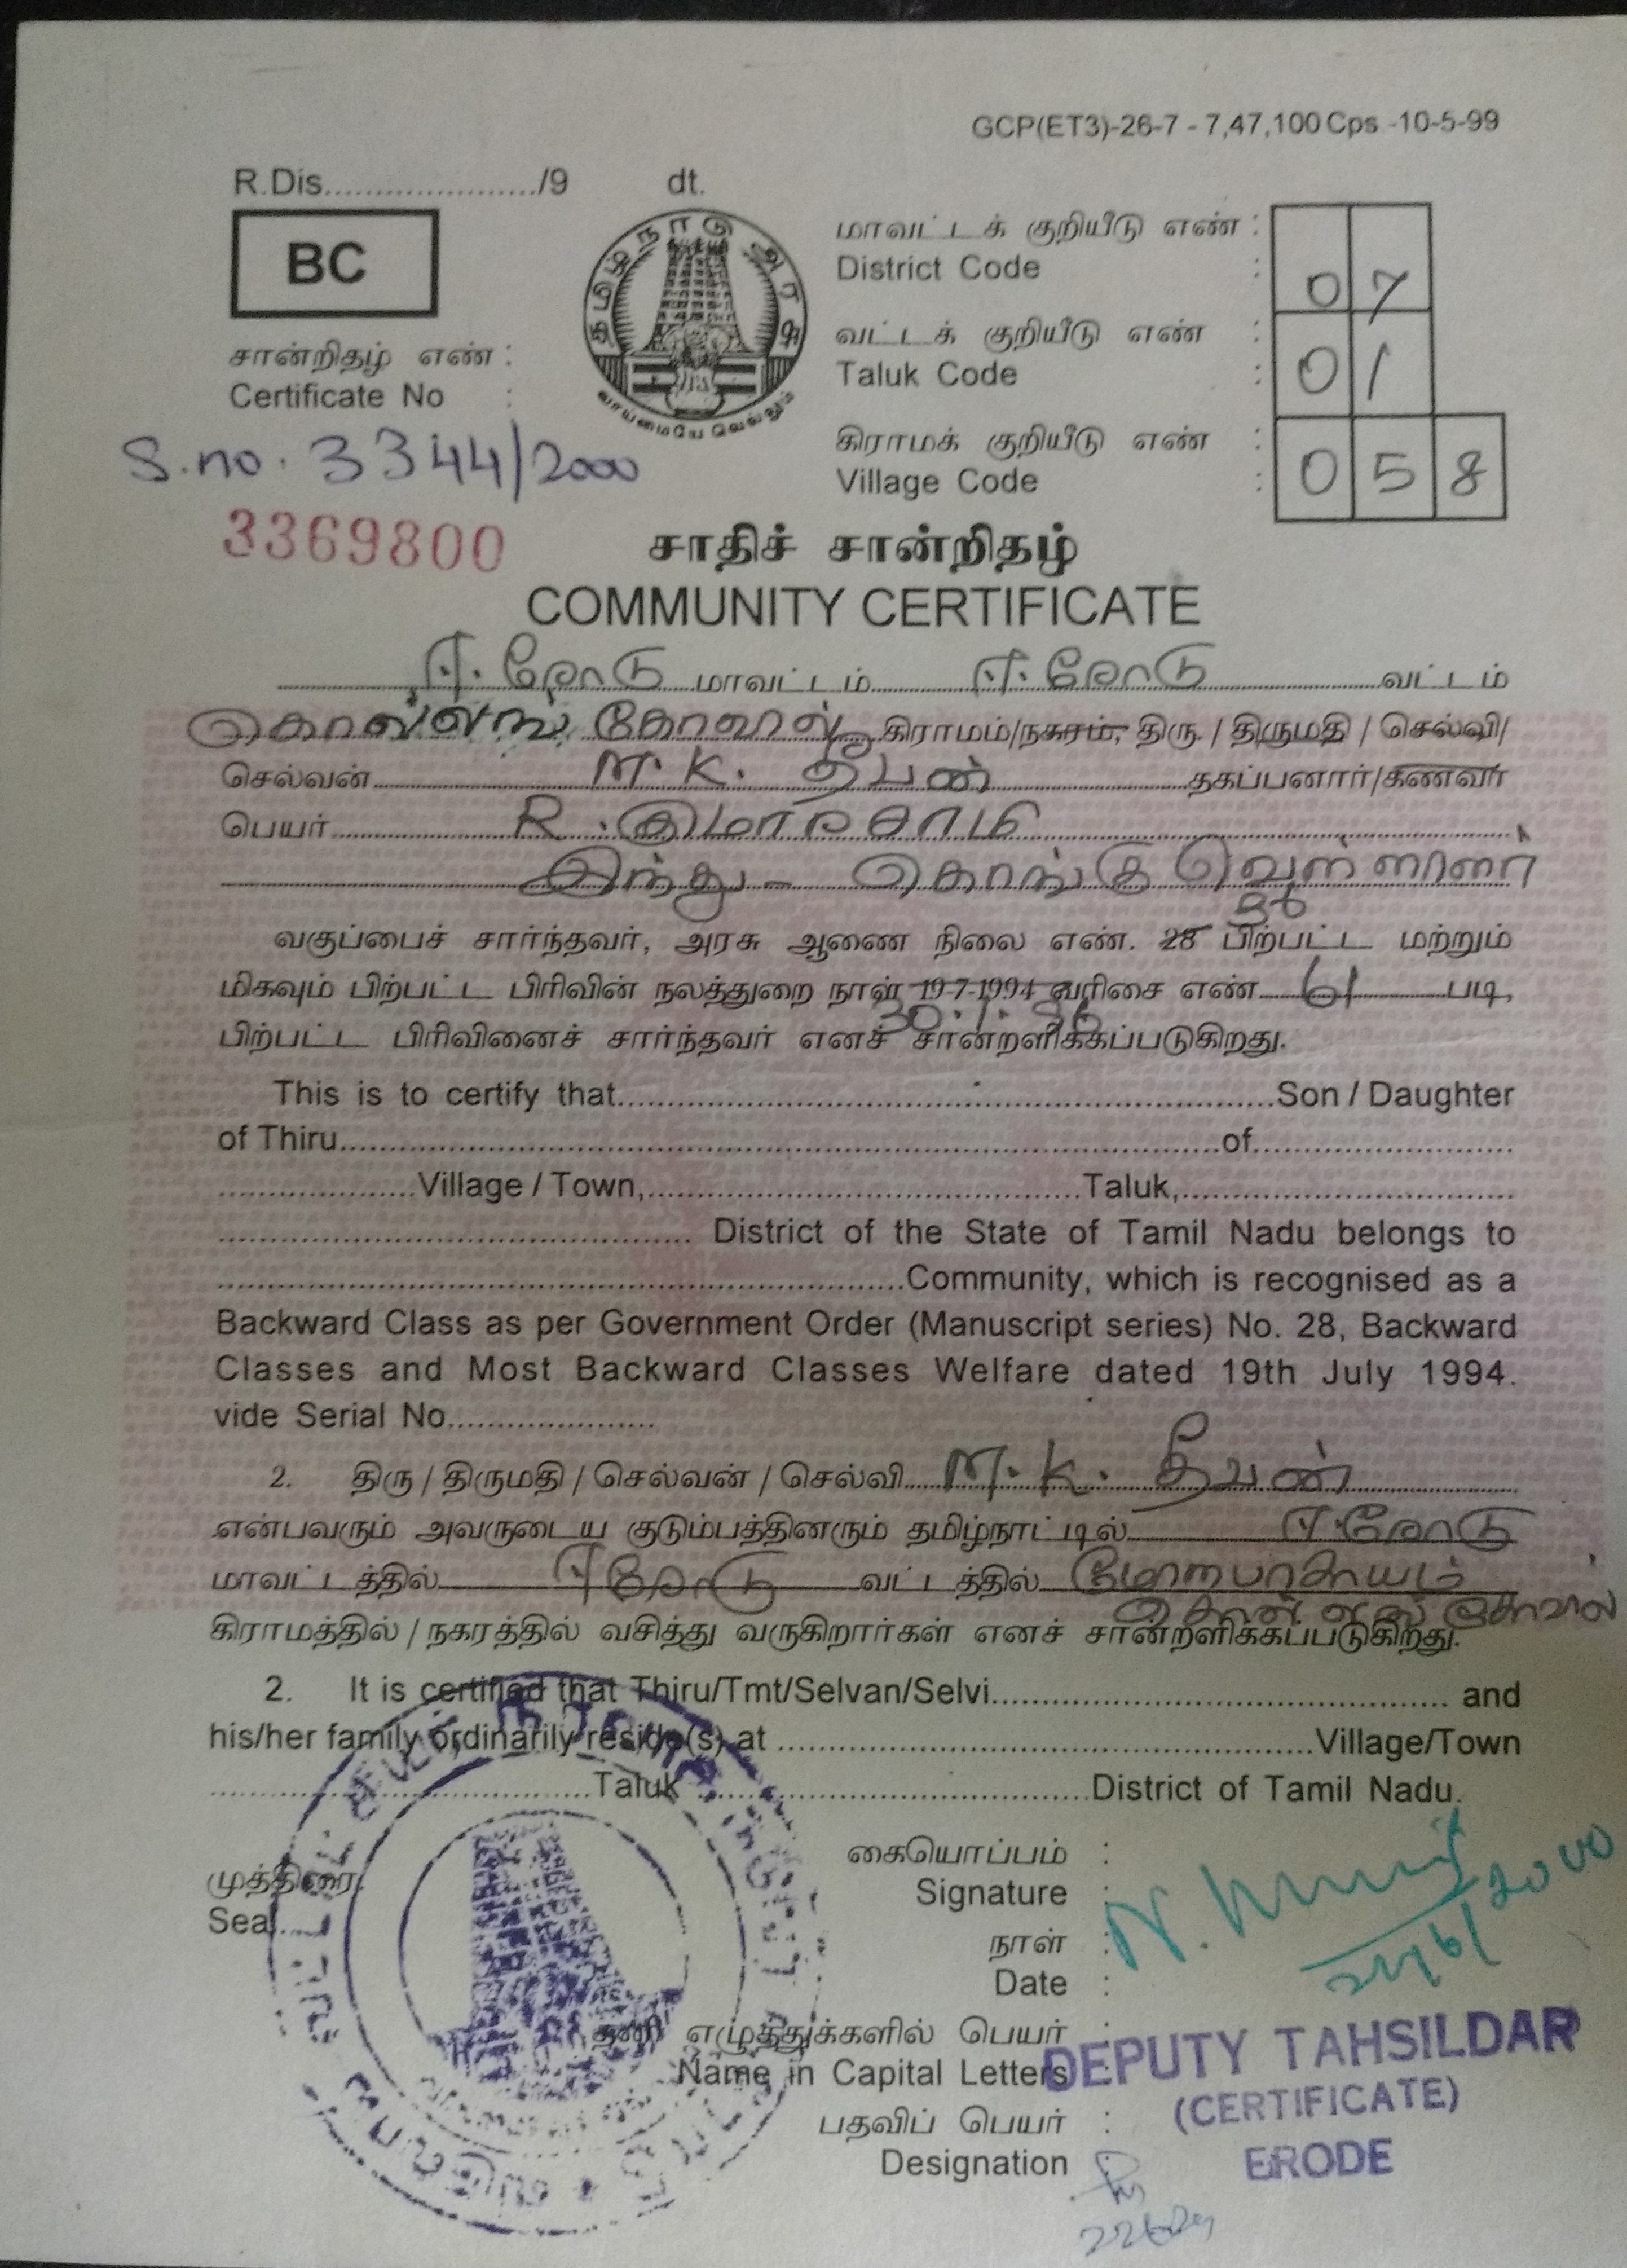 GCP(ET3)-26-7 - 7,47,100 Cps -10-5-99
R.Dis...................../9 dt.
BC
தமிழ்நாடு அரசு
வாய்மையே வெல்லும்
மாவட்டக் குறியீடு எண் :
District Code : 07
வட்டக் குறியீடு எண் :
Taluk Code : 01
கிராமக் குறியீடு எண் :
Village Code : 058
சான்றிதழ் எண் :
Certificate No :
S.no. 3344/2000
3369800
சாதிச் சான்றிதழ்
COMMUNITY CERTIFICATE
ஈரோடு மாவட்டம் ஈரோடு வட்டம்
கிராமம்/நகரம், திரு. / திருமதி / செல்வி/
செல்வன் M.K. தீபன் தகப்பனார்/கணவர்
பெயர் R. குமாரசாமி
இந்து - கொங்கு வெள்ளாளர்
36
வகுப்பைச் சார்ந்தவர், அரசு ஆணை நிலை எண். 28 பிற்பட்ட மற்றும்
மிகவும் பிற்பட்ட பிரிவின் நலத்துறை நாள் 19-7-1994 வரிசை எண் 61 படி,
30.1.96
பிற்பட்ட பிரிவினைச் சார்ந்தவர் எனச் சான்றளிக்கப்படுகிறது.
This is to certify that..................Son / Daughter
of Thiru..................of..................
..................Village / Town,..................Taluk,..................
.................. District of the State of Tamil Nadu belongs to
..................Community, which is recognised as a
Backward Class as per Government Order (Manuscript series) No. 28, Backward
Classes and Most Backward Classes Welfare dated 19th July 1994.
vide Serial No..................
2. திரு / திருமதி / செல்வன் / செல்வி M.K. தீபன்
என்பவரும் அவருடைய குடும்பத்தினரும் தமிழ்நாட்டில் ஈரோடு
மாவட்டத்தில் ஈரோடு வட்டத்தில்
கிராமத்தில் / நகரத்தில் வசித்து வருகிறார்கள் எனச் சான்றளிக்கப்படுகிறது.
2. It is certified that Thiru/Tmt/Selvan/Selvi.................. and
his/her family ordinarily reside(s) at ..................Village/Town
..................Taluk ..................District of Tamil Nadu.
கையொப்பம் :
Signature :
முத்திரை
Seal
நாள் :
Date :
தனி எழுத்துக்களில் பெயர் :
Name in Capital Letters
பதவிப் பெயர் :
Designation :
DEPUTY TAHSILDAR
(CERTIFICATE)
ERODE